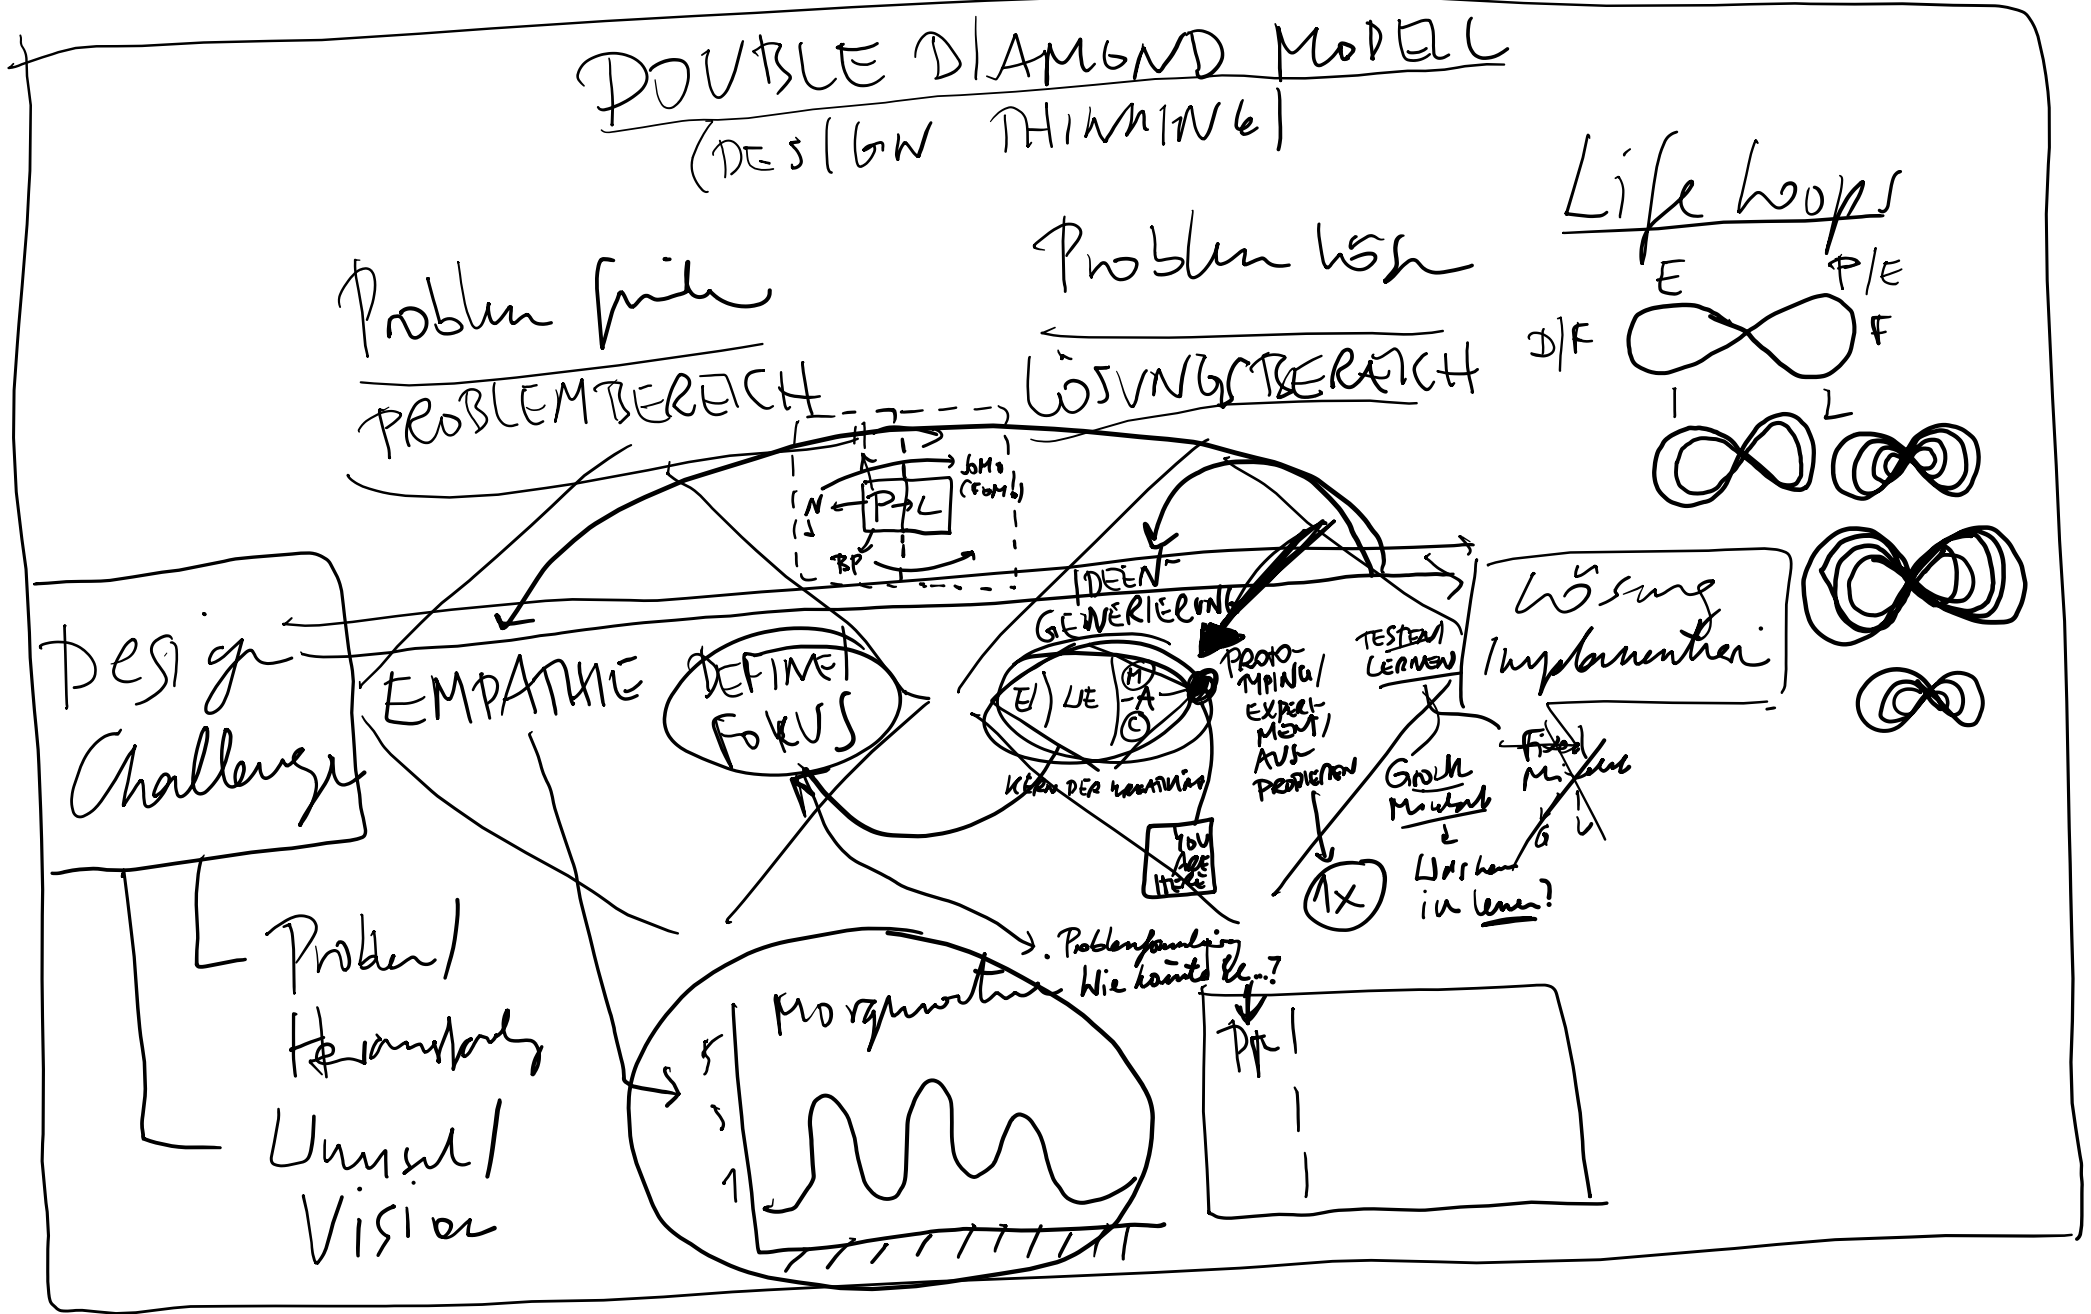 DOUBLE DIAMOND MODELL
(DESIGN THINKING)
Life Loops
Problem finden
PROBLEMBEREICH
Problem lösen
LÖSUNGSBEREICH
E
P/E
D/F
F
I
L
JOMO
(FOMO!)
N
P
L
BP
Design
Challenge
EMPATHIE
DEFINE/
FOKUS
IDEEN-
GENERIERUNG
E/
UE
M
A
C
KERN DER KREATIVITÄT
PROTO-
TYPING/
EXPERI-
MENT/
AUS-
PROBIEREN
1x
TESTEN/
LERNEN
Lösung
Implementieren
G
L
in lernen?
YOU
ARE
HERE
Problem/
Herausforderung
Wunsch/
Vision
Problemformulierung
Wie könnte
...?
5
3
1